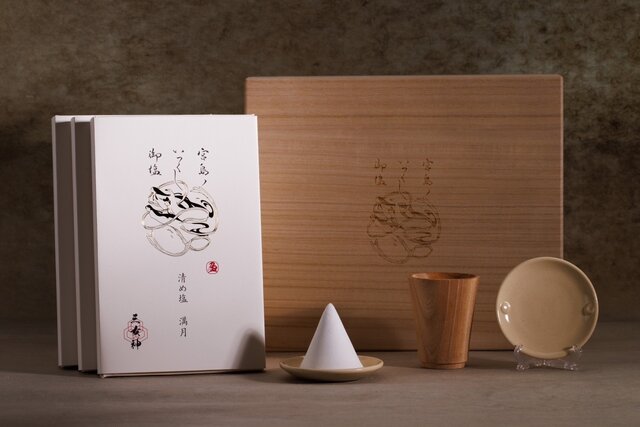 宮島ノ
いつくし
御塩
清め塩　満月
三女神
宮島ノ
いつくし
御塩